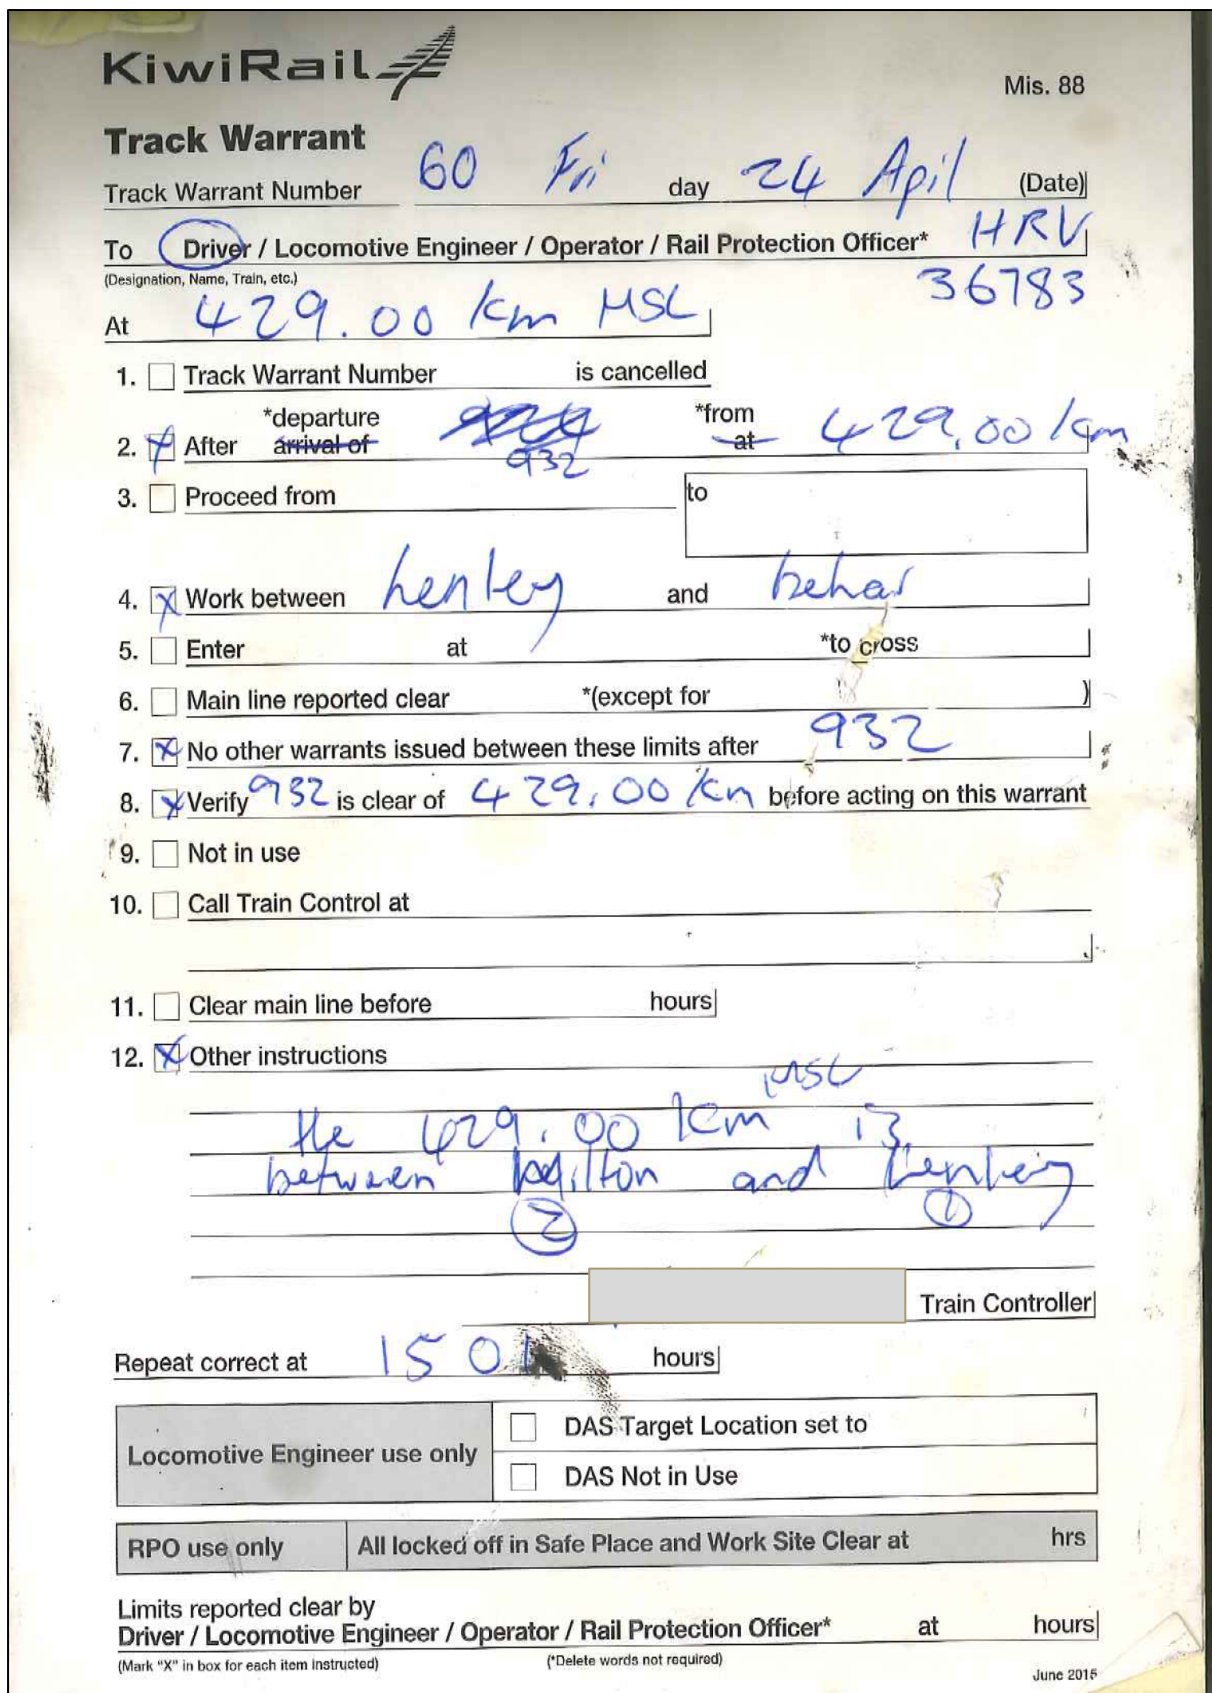 KiwiRail
Mis. 88
Track Warrant
Track Warrant Number 60 Fri day 24 Apil (Date)
To Driver / Locomotive Engineer / Operator / Rail Protection Officer* HRV
(Designation, Name, Train, etc.) 36783
At 429.00 km MSL
1. Track Warrant Number is cancelled
*departure *from
2. X After arrival of 932 at 429.00 km
3. Proceed from to
4. X Work between henley and
5. Enter at *to cross
6. Main line reported clear *(except for )
7. X No other warrants issued between these limits after 932
8. X Verify 932 is clear of 429.00 km before acting on this warrant
9. Not in use
10. Call Train Control at
11. Clear main line before hours
12. X Other instructions
MSL
the 429.00 km is
between and henley
2 1
Train Controller
Repeat correct at 1501 hours
Locomotive Engineer use only
DAS Target Location set to
DAS Not in Use
RPO use only All locked off in Safe Place and Work Site Clear at hrs
Limits reported clear by
Driver / Locomotive Engineer / Operator / Rail Protection Officer* at hours
(Mark "X" in box for each item instructed) (*Delete words not required)
June 2015